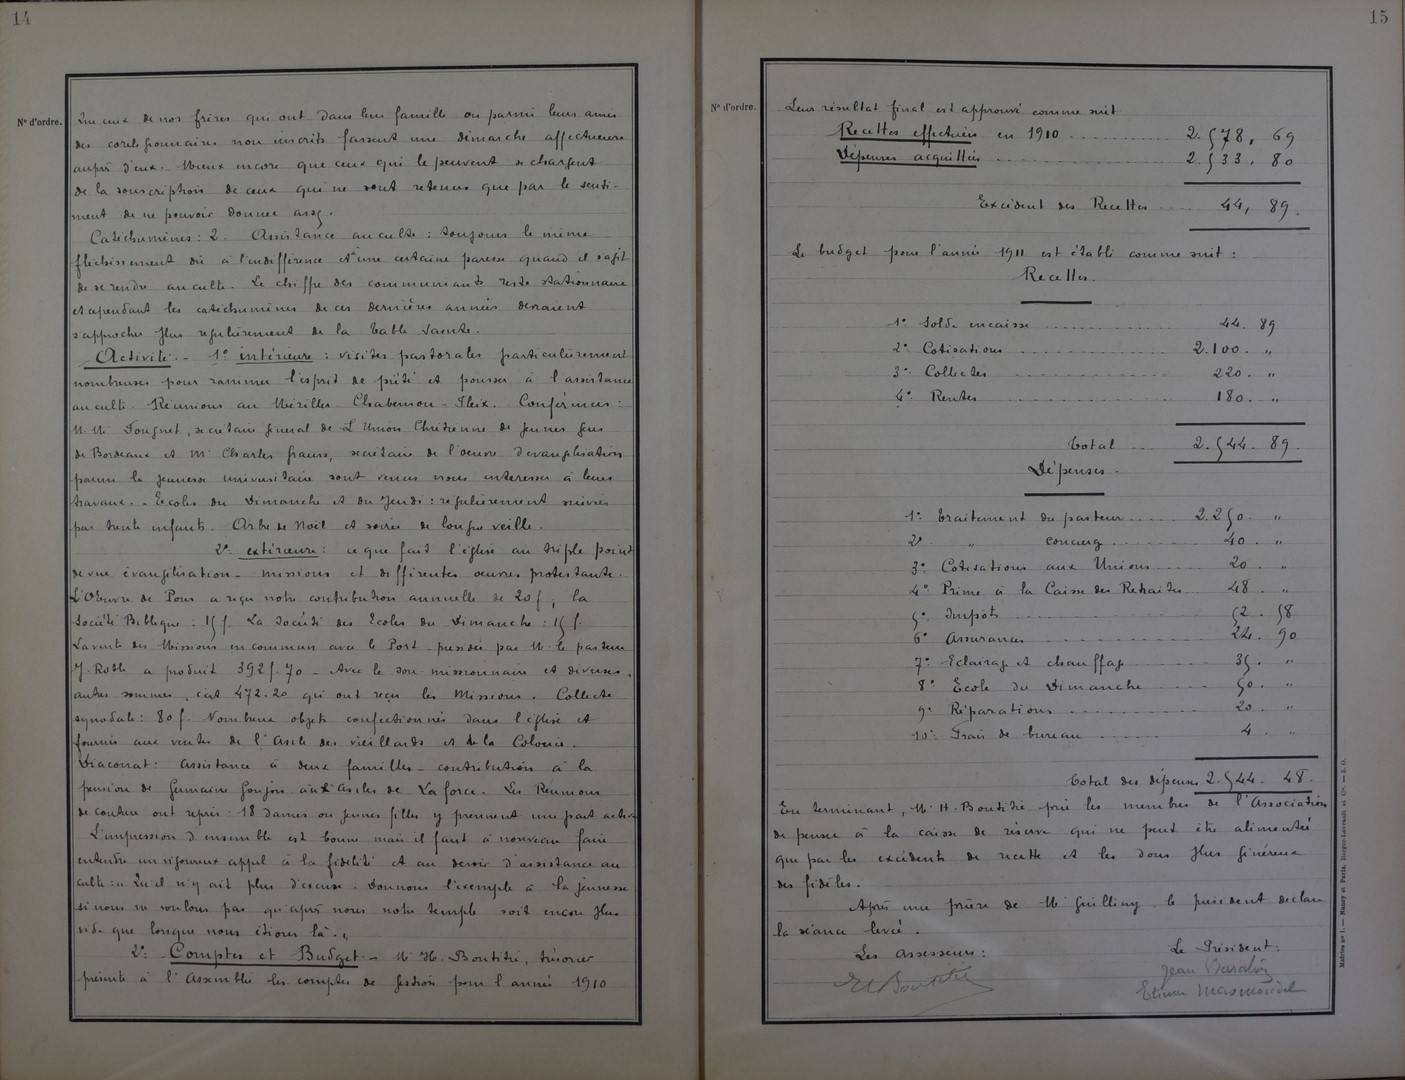 14
N° d'ordre.
Que ceux de nos frères qui ont dans leur famille ou parmi leurs amis
des coreligionnaires non inscrits fassent une démarche affectueuse
auprès d'eux. Mieux encore que ceux qui le peuvent se chargent
de la souscription de ceux qui ne sont retenus que par le senti-
ment de ne pouvoir donner assez.
Catéchumènes : 2. Assistance au culte : toujours le même
fléchissement dû à l'indifférence et à une certaine paresse quand il s'agit
de se rendre au culte. Le chiffre des communiants reste stationnaire
et cependant les catéchumènes de ces dernières années devraient
s'approcher plus régulièrement de la Table Sainte.
Activité. - 1° intérieure : visites pastorales particulièrement
nombreuses pour ranimer l'esprit de piété et pousser à l'assistance
au culte. Réunions au Chabernon - Fleix. Conférences :
M. Mr , secrétaire général de l'Union Chrétienne de jeunes gens
de Bordeaux et Mr Charles , secrétaire de l'oeuvre d'évangélisation
parmi la jeunesse universitaire sont venus nous intéresser à leurs
travaux. - Ecoles du Dimanche et du Jeudi : régulièrement suivies
par trente enfants. Arbre de Noël et soirée de longue veille.
2° extérieure : ce que fait l'église au triple point
de vue évangélisation - missions et différentes oeuvres protestantes.
L'Oeuvre de Pons a reçu notre contribution annuelle de 20 f, la
Société Biblique : 15 f. La Société des Ecoles du Dimanche : 15 f.
La vente des Missions en commun avec le Port présidée par M. le pasteur
J. Roth a produit 392 f. 70 - Avec le sou missionnaire et diverses
autres sommes, c'est 472.20 qu'ont reçu les Missions. Collecte
synodale : 80 f. Nombreux objets confectionnés dans l'église et
fournis aux ventes de l'Asile des vieillards et de la Colonie.
Diaconat : Assistance à deux familles - contribution à la
pension de Germaine Goujon aux Asiles de Laforce. Les Réunions
de couture ont repris : 18 dames ou jeunes filles y prennent une part active
L'impression d'ensemble est bonne mais il faut à nouveau faire
entendre un vigoureux appel à la fidélité et au devoir d'assistance au
culte : " Qu'il n'y ait plus d'excuse. Donnons l'exemple à la jeunesse
si nous ne voulons pas qu'après nous notre temple soit encore plus
vide que lorsque nous étions là. "
2°: Comptes et Budget - M. H. Boutitié, trésorier
présente à l'Assemblée les comptes de gestion pour l'année 1910
15
N° d'ordre.
Leur résultat final est approuvé comme suit
Recettes effectuées en 1910 2.578, 69
Dépenses acquittées 2.533. 80
Excédent des Recettes 44, 89.
Le budget pour l'année 1911 est établi comme suit :
Recettes.
1° Solde encaisse 44. 89
2° Cotisations 2.100. "
3° Collectes 220. "
4° Rentes 180. "
Total 2.544. 89.
Dépenses.
1° Traitement du pasteur 2.250. "
2° " concierg 40. "
3° Cotisations aux Unions 20. "
4° Prime à la Caisse des Retraites 48. "
5° Impôts 52. 58
6° Assurances 24. 90
7° Eclairage et chauffage 35. "
8° Ecole du Dimanche 50. "
9° Réparations 20. "
10° Frais de bureau 4. "
Total des dépenses 2.544. 48.
En terminant, M. H. Boutitié prie les membres de l'Association
de penser à la caisse de réserve qui ne peut être alimentée
que par les excédents de recette et les dons plus généreux
des fidèles.
Après une prière de M. Guilliny le président déclare
la séance levée.
Les assesseurs : Le Président :
H Boutitié Jean
Etienne
Modèles n° 1. — Nancy et Paris, Berger-Levrault et Cie. — J. O.